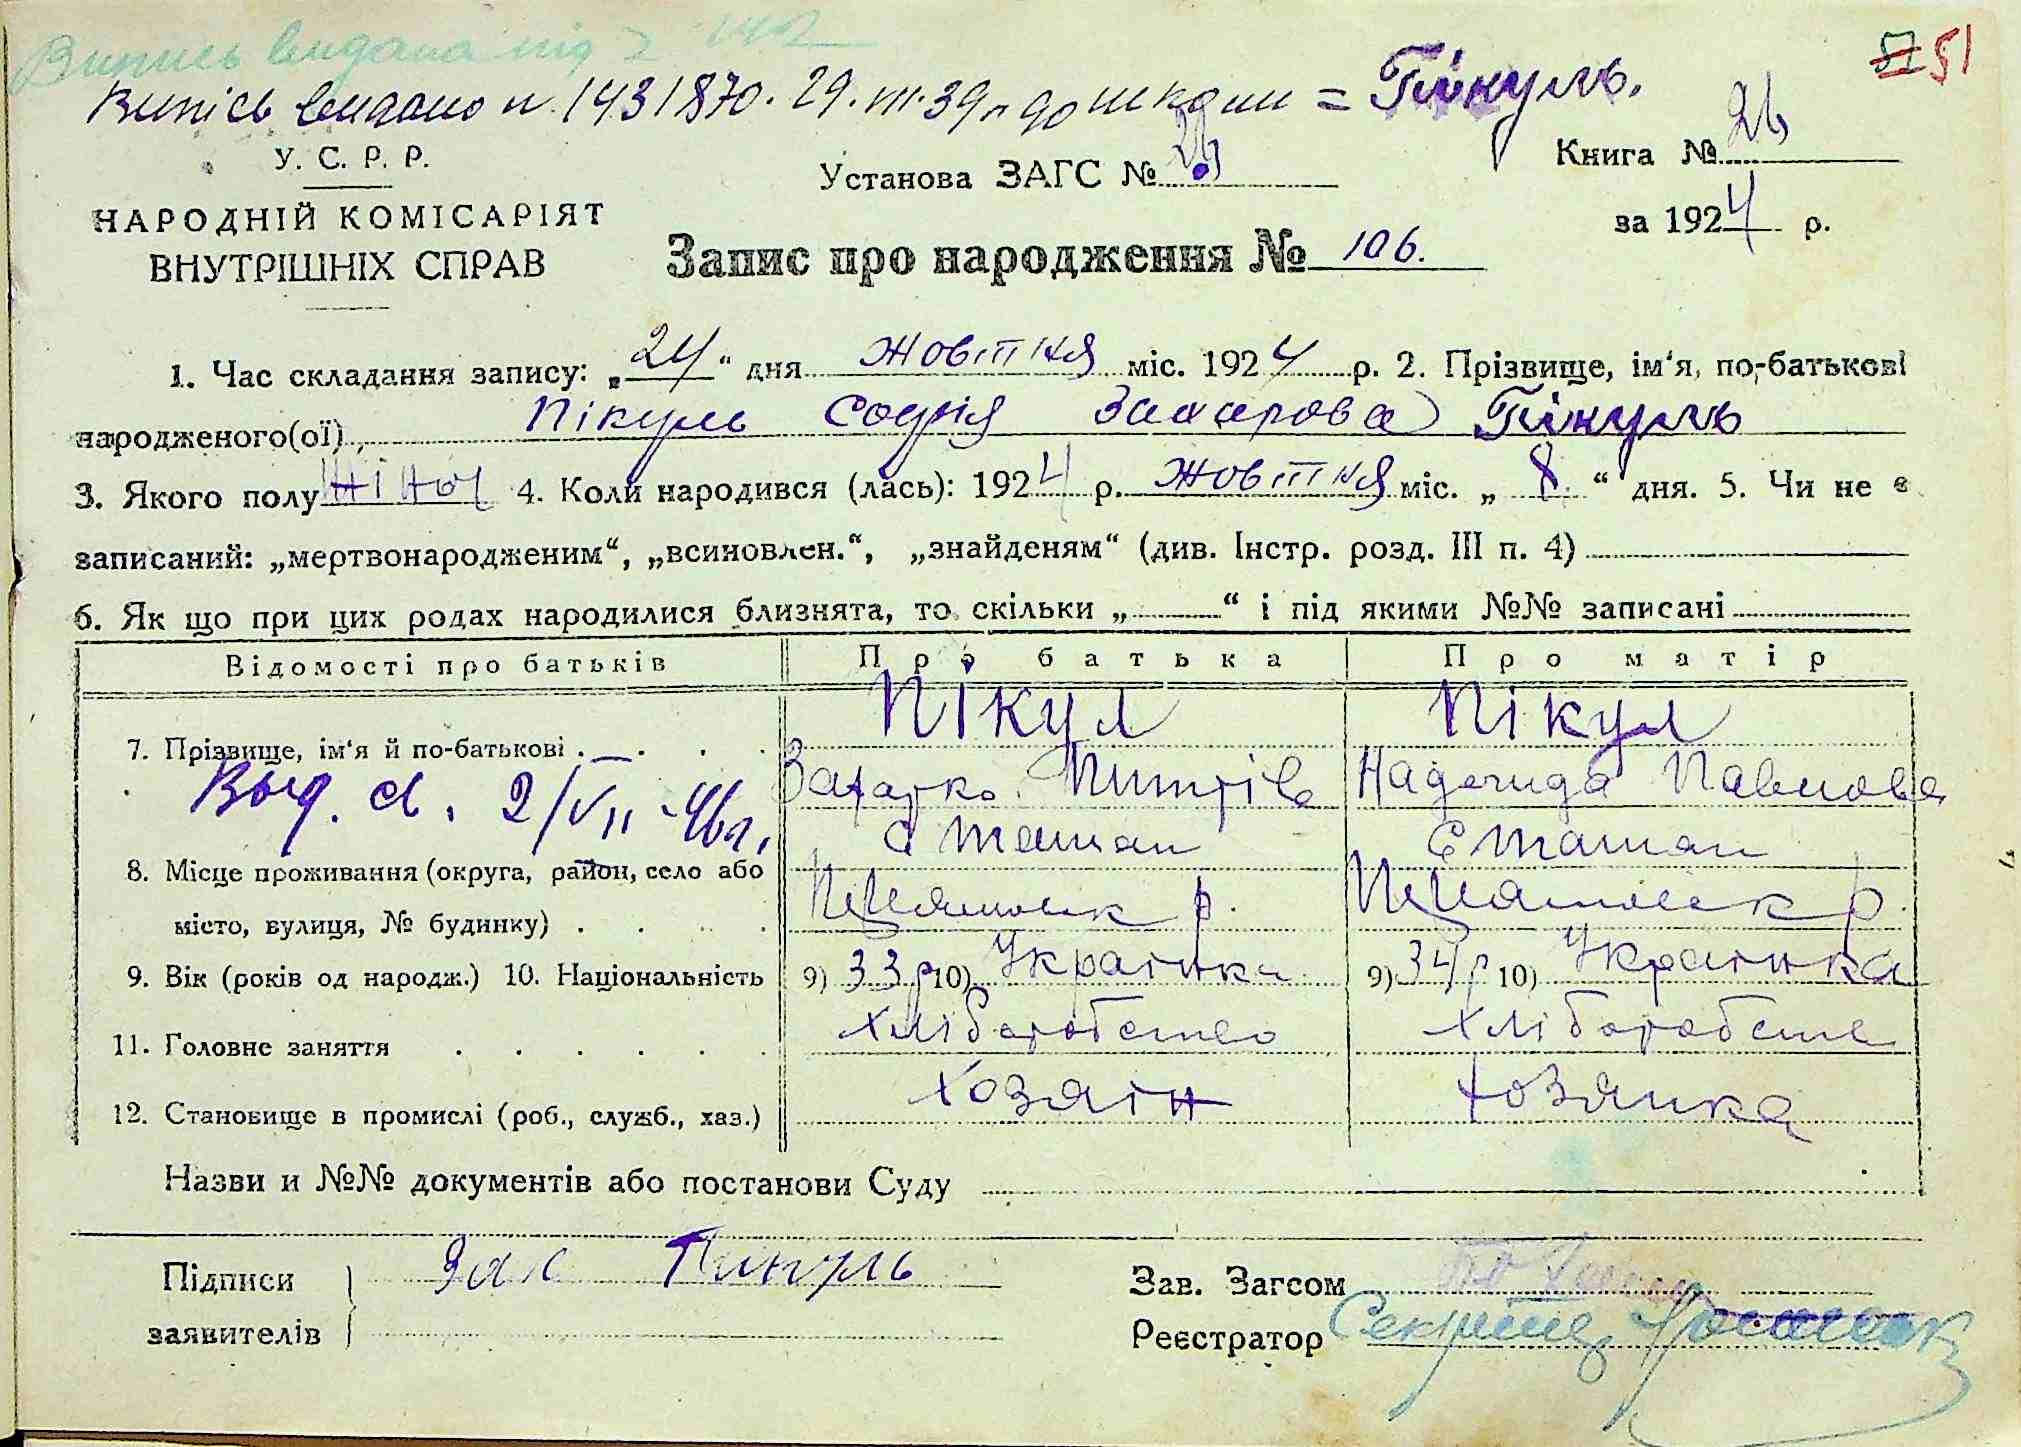 Випись видана під
Випісь видано н. 1431870. 29.III.39р до школи = Пікуль.
51
У. С. Р. Р.
Установа ЗАГС №
Книга № 26
НАРОДНІЙ КОМІСАРІЯТ
ВНУТРІШНІХ СПРАВ
за 1924 р.
Запис про народження № 106.
1. Час складання запису: „24“ дня жовтня міс. 1924 р. 2. Прізвище, ім‘я, по-батькові
народженого(ої) Пікуль Софія Захарова Пікуль
3. Якого полу жіноч 4. Коли народився (лась): 1924 р. жовтня міс. „8“ дня. 5. Чи не є
записаний: „мертвонародженим“, „всиновлен.“, „знайденям“ (див. Інстр. розд. III п. 4)
6. Як що при цих родах народилися близнята, то скільки „ “ і під якими №№ записані
Відомості про батьків Про батька Про матір
Пікул Пікул
7. Прізвище, ім‘я й по-батькові
Захарко Надежида Павлова
Выд. св. 2/VII-46г.
8. Місце проживання (округа, район, село або
місто, вулиця, № будинку) р. р.
9. Вік (років од народж.) 10. Національність 9) 33р 10) Українка 9) 34р 10) Українка
11. Головне заняття хліборобство хліборобств
12. Становище в промислі (роб., служб., хаз.) хозяін хозяйка
Назви и №№ документів або постанови Суду
Підписи Зах Пикуль Зав. Загсом
заявителів Реєстратор Секретар